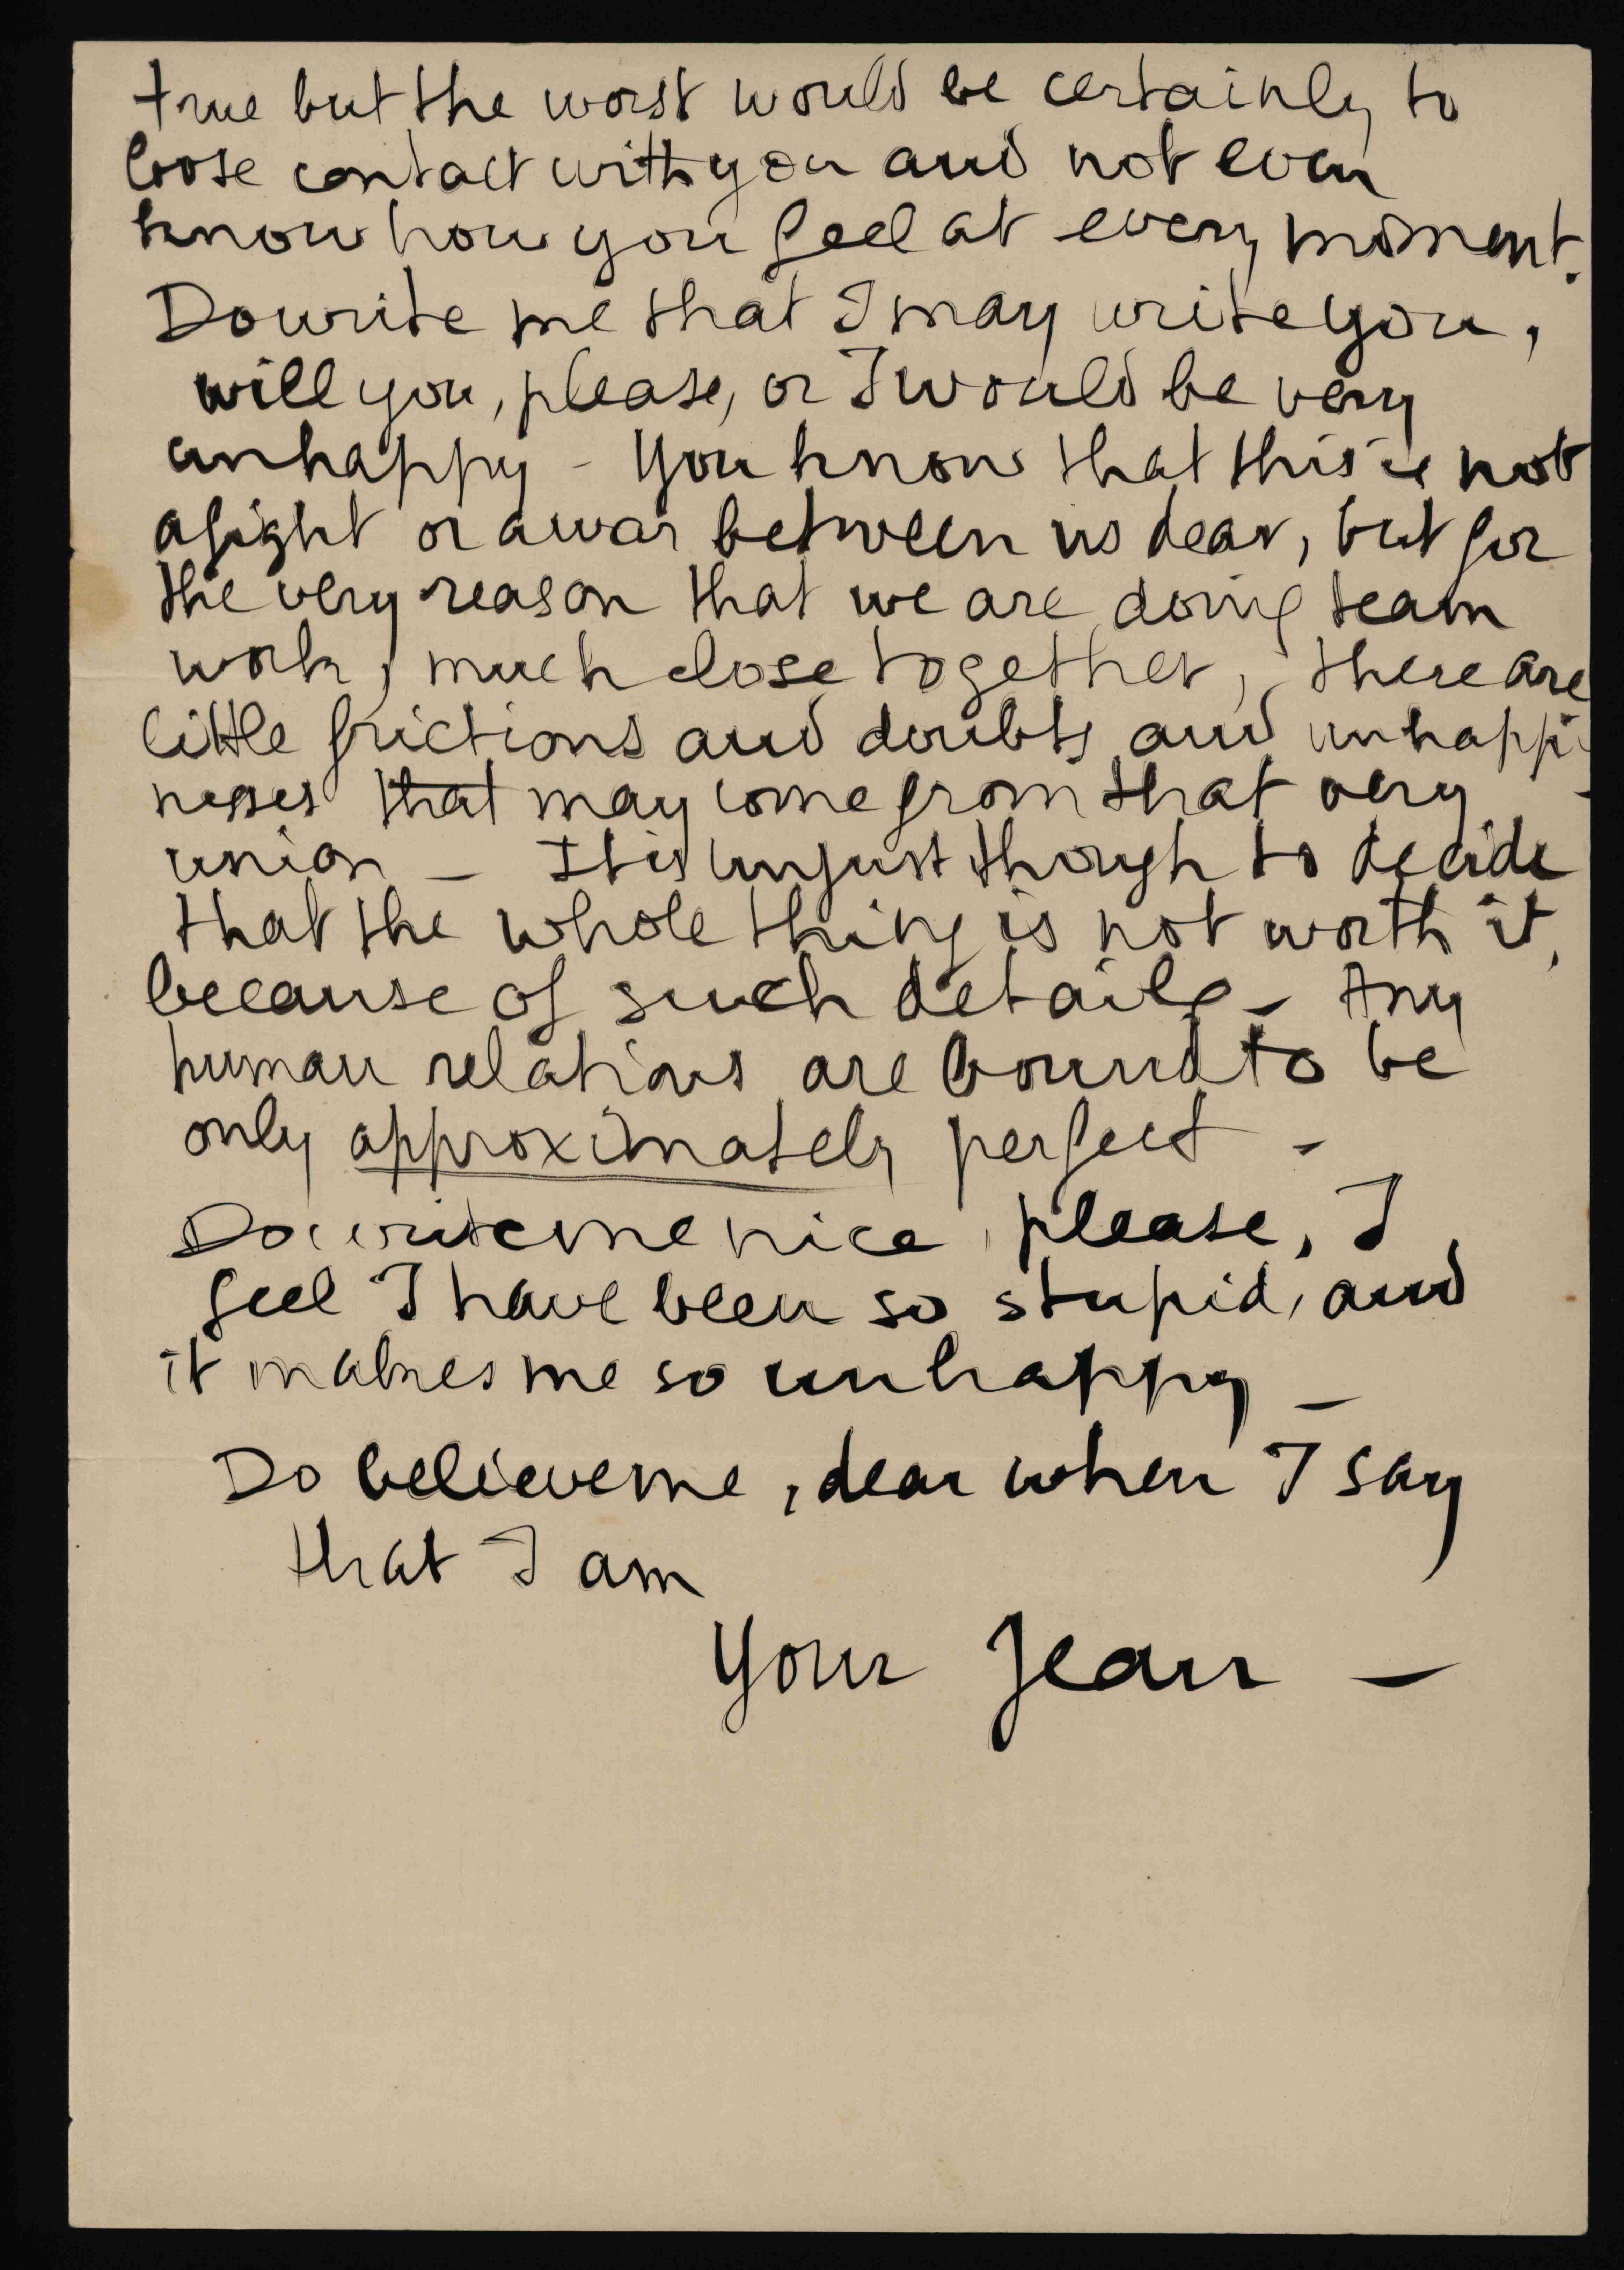 true but the worst would be certainly to
loose contact with you and not even
know how you feel at every moment.
Do write me that I may write you,
will you, please, or I would be very
unhappy - You know that this is not
a fight or a war between us dear, but for
the very reason that we are doing team
work, much close together, there are
little frictions and doubts and unhappi-
nesses that may come from that very
union - It is unjust though to decide
that the whole thing is not worth it,
because of such details - Any
human relations are bound to be
only approximately perfect -
Do write me nice, please, I
feel I have been so stupid, and
it makes me so unhappy -
Do believe me, dear when I say
that I am
Your Jean -